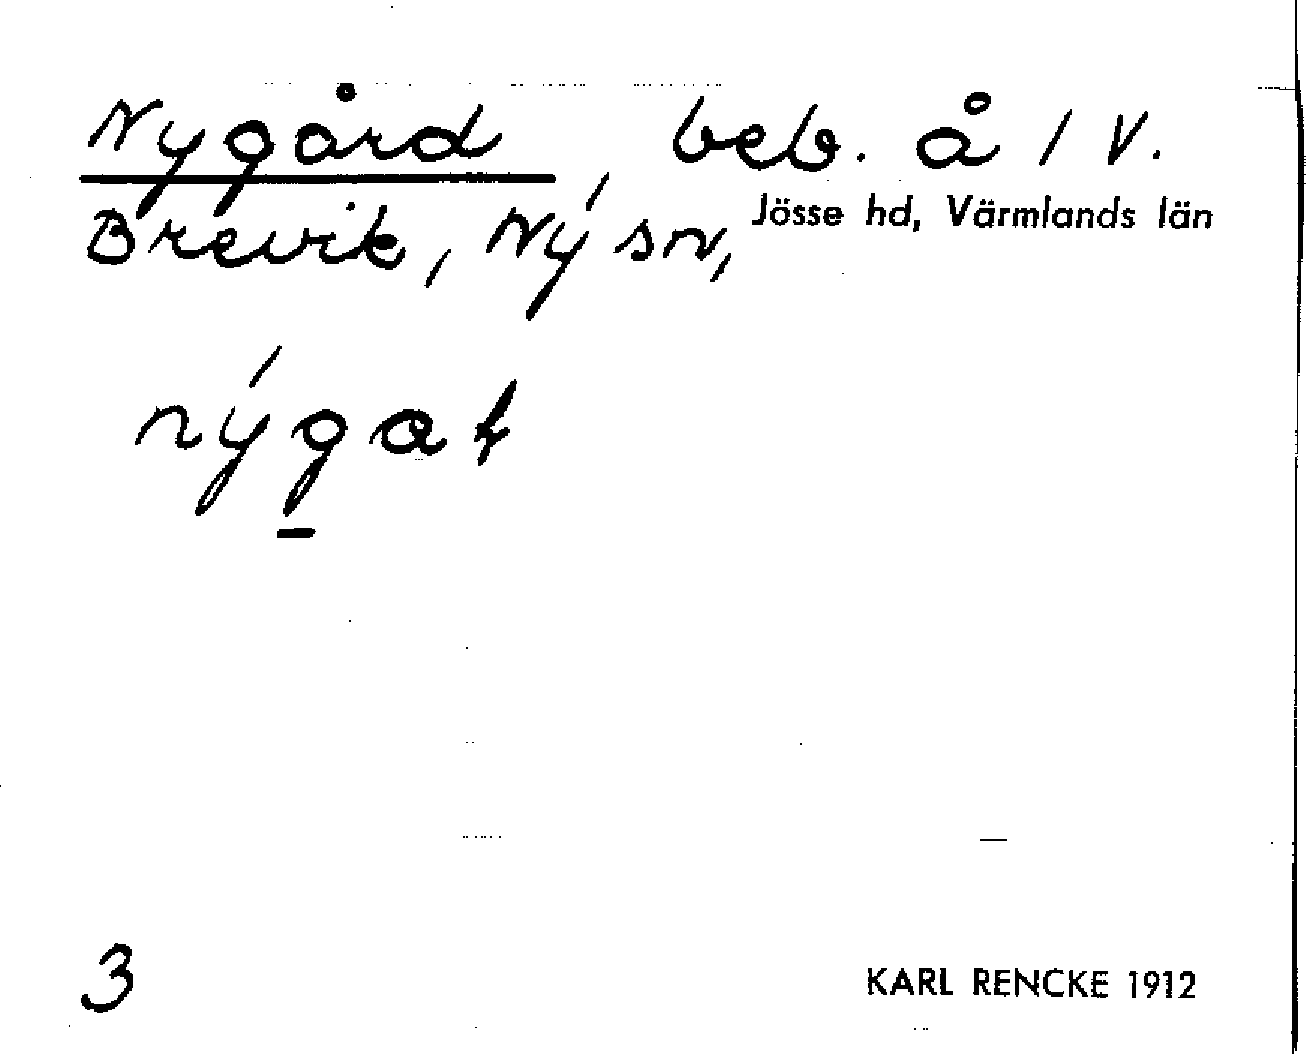 Nygård, beb. å 1 V.
Brevik, Ny sn, Jösse hd, Värmlands län
nýgat
3
KARL RENCKE 1912